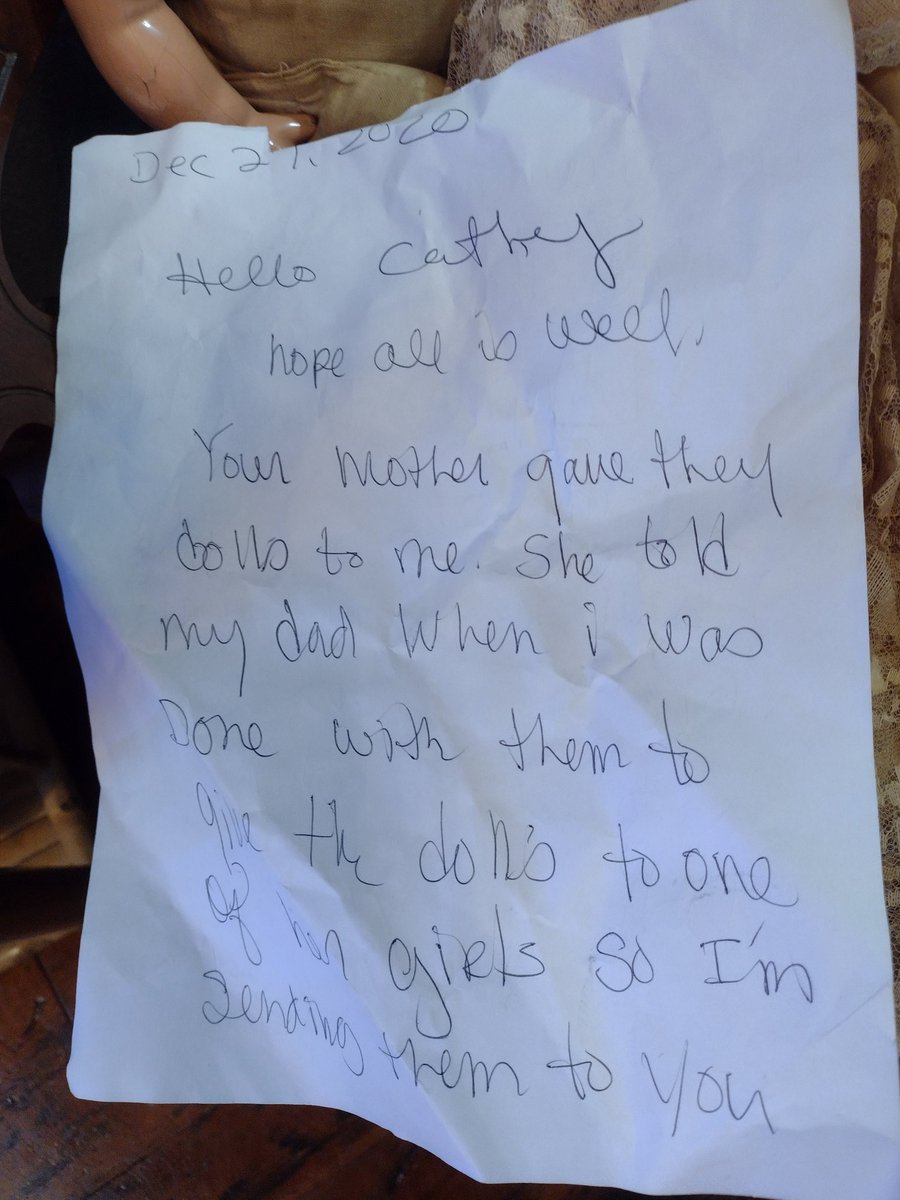 Dec 21, 2020
Hello Cathey
hope all is well.
Your mother gave they
dolls to me. She told
my dad when i was
Done with them to
give the doll's to one
of her girls so I'm
Sending them to you